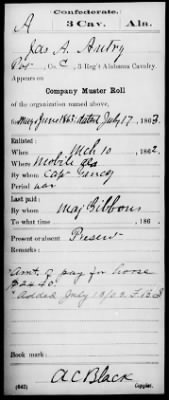 Confederate.
A 3 Cav. Ala.
Jas A. Autry
Pvt, Co. C, 3 Reg't Alabama Cavalry.
Appears on
Company Muster Roll
of the organization named above,
for May & June 1863. dated July 17, 1863.
Enlisted:
When Mch 10, 1862.
Where Mobile Ala
By whom Capt
Period war
Last paid:
By whom Maj Gibbons
To what time 186 .
Present or absent Present
Remarks:
Amt. of pay for horse
Added July
Book mark:
(642) A C Black
Copyist.